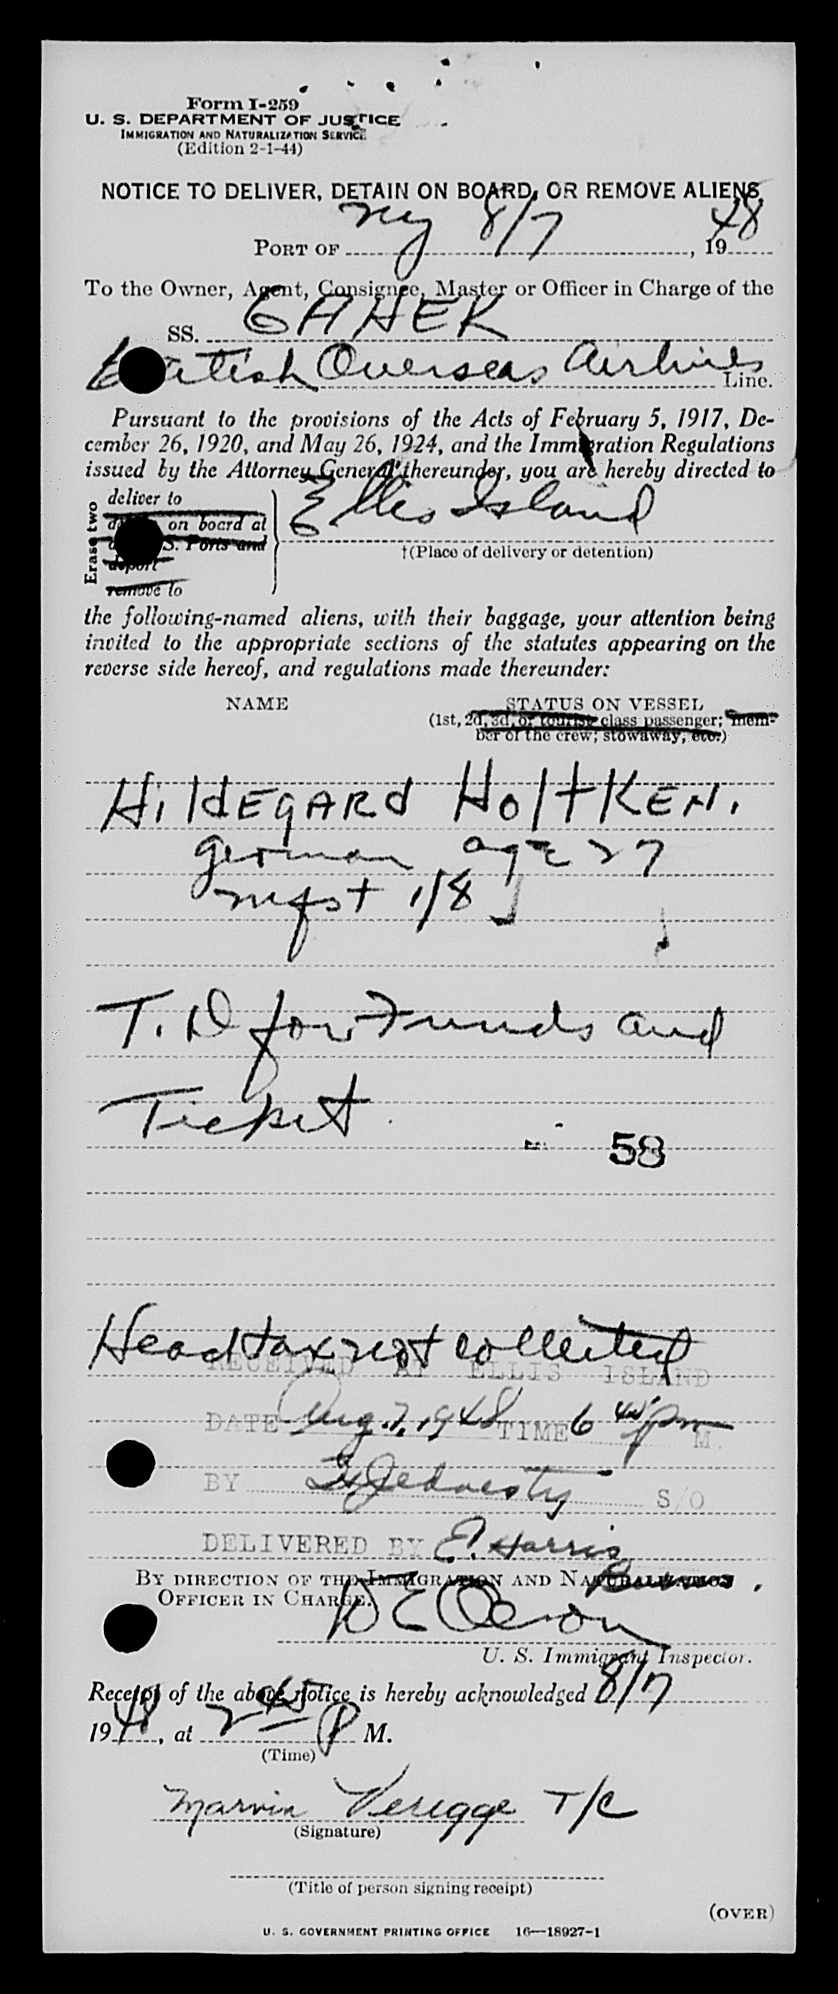 Form I-259
U. S. DEPARTMENT OF JUSTICE
IMMIGRATION AND NATURALIZATION SERVICE
(Edition 2-1-44)
NOTICE TO DELIVER, DETAIN ON BOARD, OR REMOVE ALIENS
PORT OF NY 8/7, 1948
To the Owner, Agent, Consignee, Master or Officer in Charge of the
SS. GAHEK
British Overseas Airlines Line.
Pursuant to the provisions of the Acts of February 5, 1917, De-
cember 26, 1920, and May 26, 1924, and the Immigration Regulations
issued by the Attorney General thereunder, you are hereby directed to
Erase two
deliver to
on board at
S. Ports and
deport
remove to
Ellis Island
†(Place of delivery or detention)
the following-named aliens, with their baggage, your attention being
invited to the appropriate sections of the statutes appearing on the
reverse side hereof, and regulations made thereunder:
NAME STATUS ON VESSEL
(1st, 2d, 3d, or tourist class passenger; mem-
ber of the crew; stowaway, etc.)
HildEgARd HoltKEN.
german age 27
mfst 1/8
T. D for Funds and
Ticket
58
Head tax not collected
RECEIVED AT ELLIS ISLAND
DATE Aug. 7, 1948 TIME 6 45 pm M.
BY S/O
DELIVERED BY E. Harris
BY DIRECTION OF THE IMMIGRATION AND NATURALIZATION
OFFICER IN CHARGE.
U. S. Immigrant Inspector.
Receipt of the above notice is hereby acknowledged 8/7
1948, at 2 45 P M.
(Time)
Marvin Veregge T/C
(Signature)
(Title of person signing receipt)
(OVER)
U. S. GOVERNMENT PRINTING OFFICE 16—18927-1